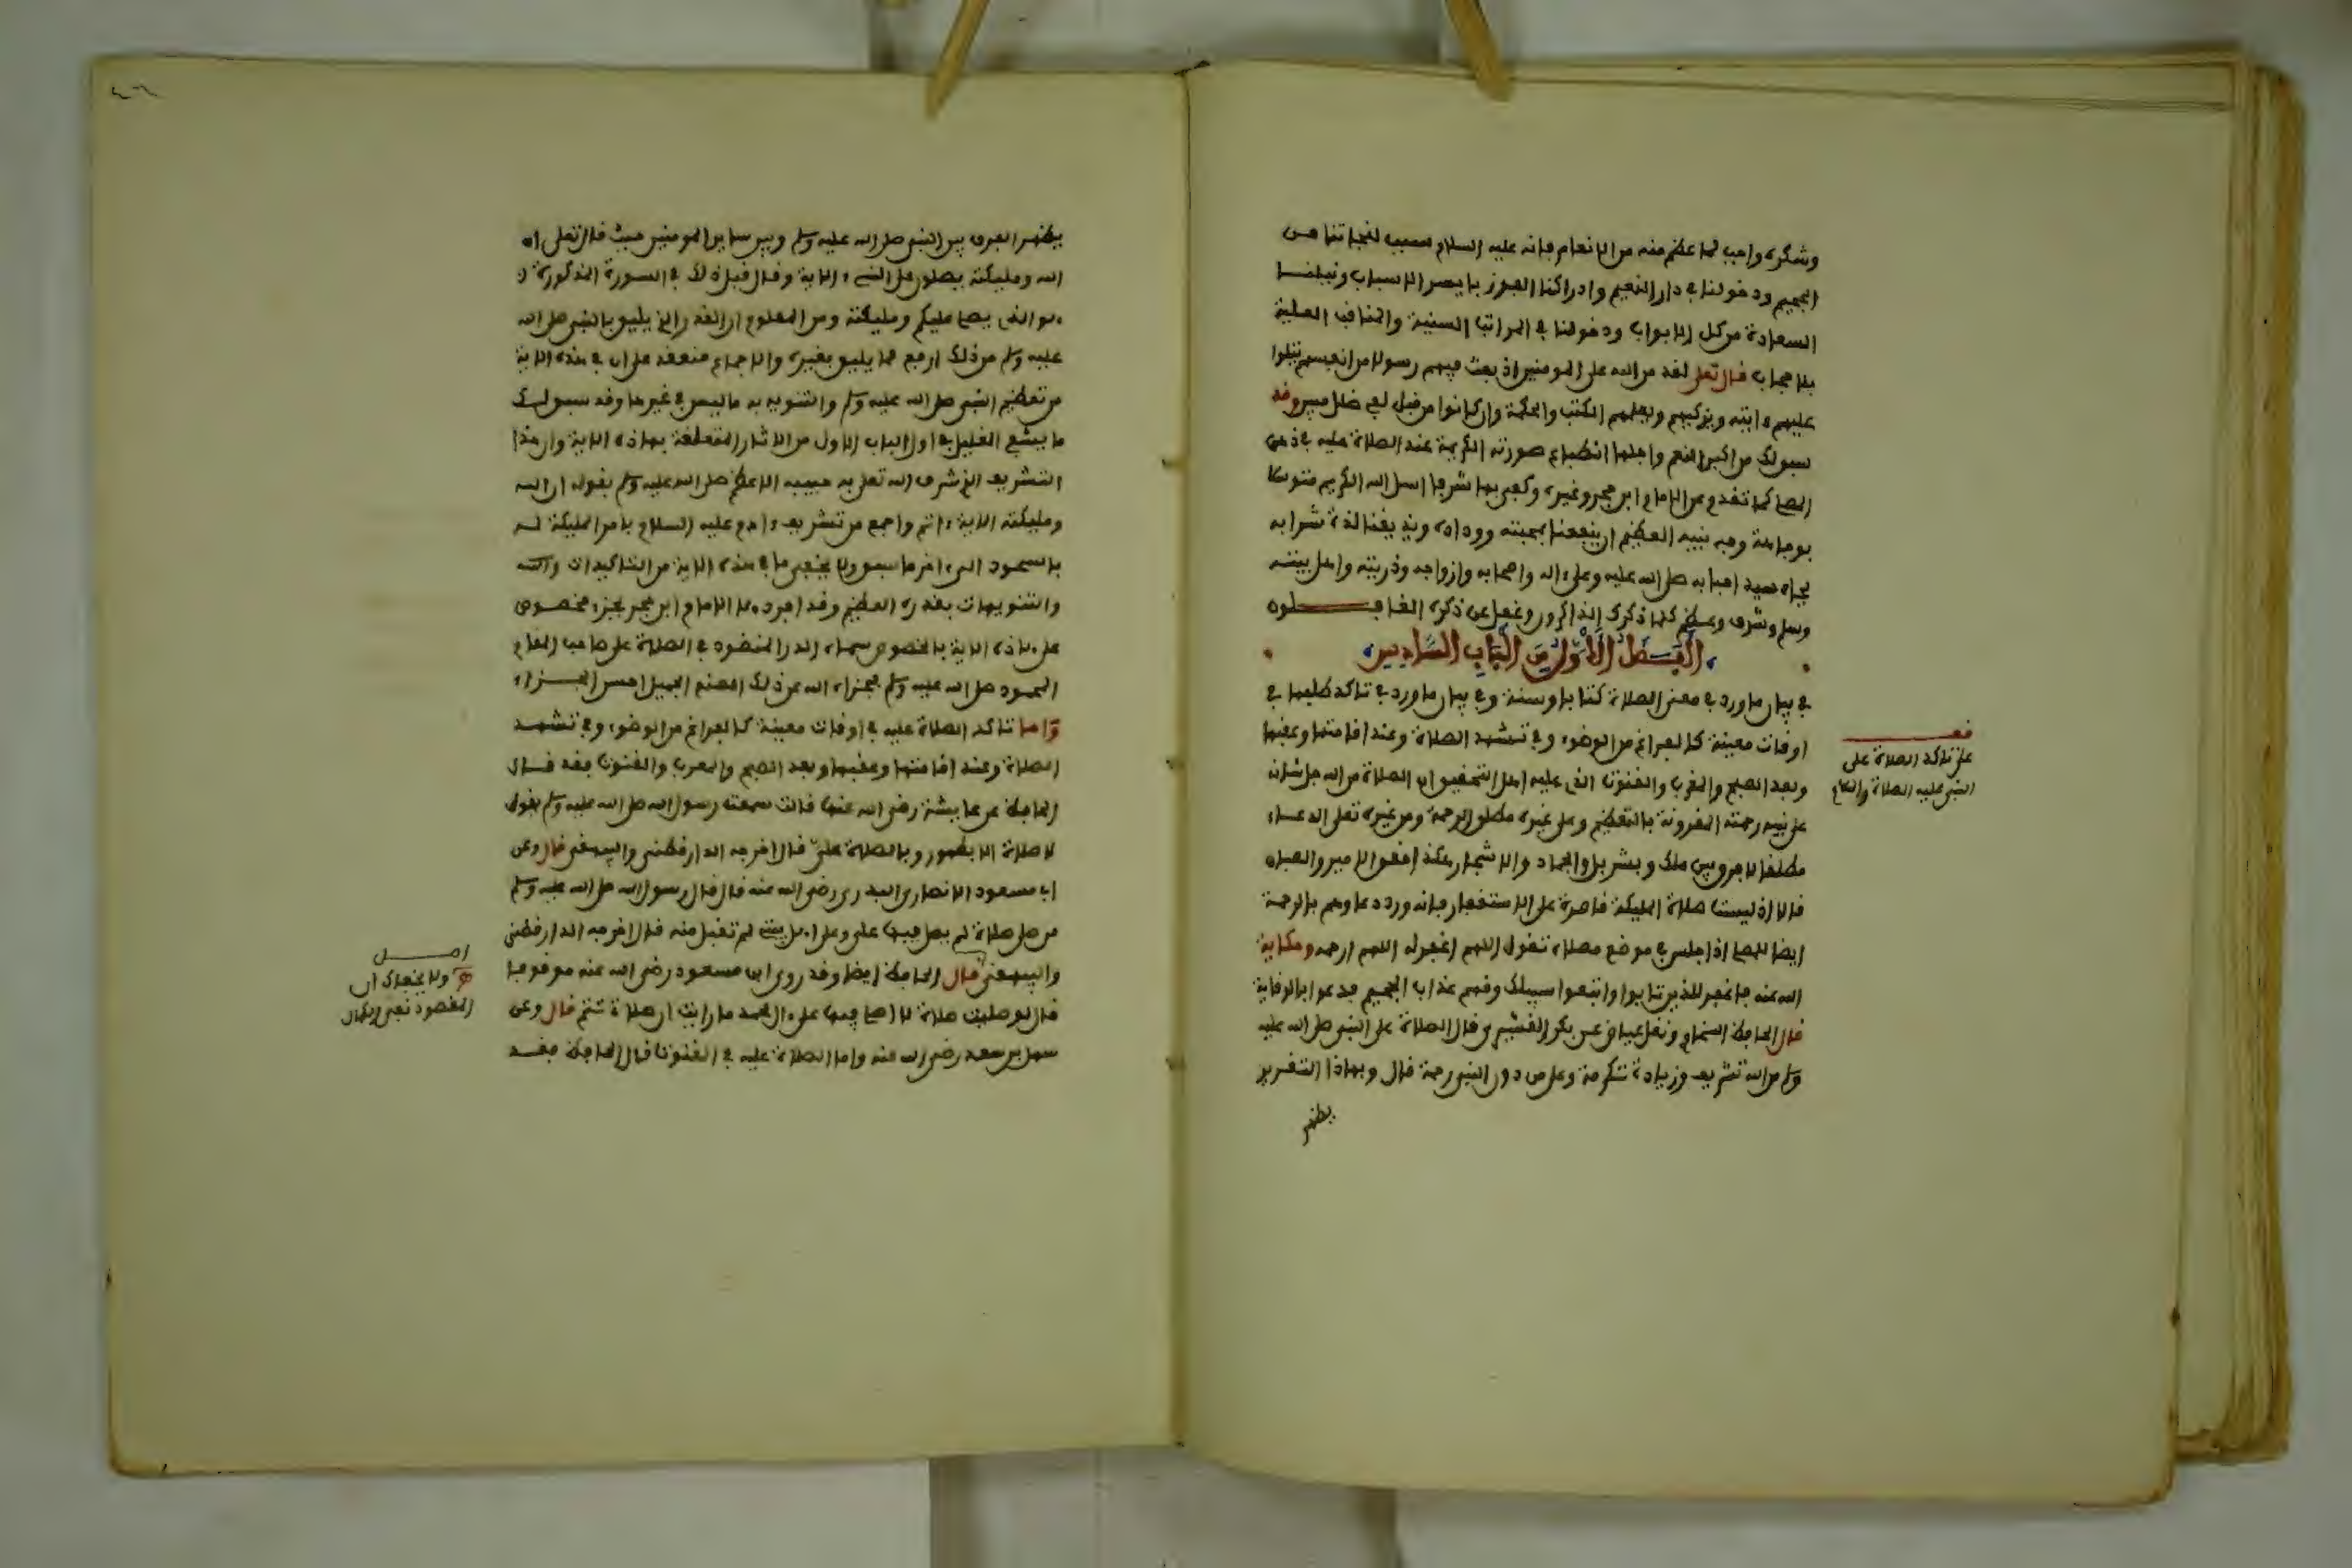 وشكره واجب لما عظم منه من الانعام فانه عليه السلام سبب لنجاتنا من
الجحيم ودخولنا في دار النعيم وادراكنا الفوز بايسر الاسباب ونيلنا
السعادة من كل الابواب ودخولنا في المراتب السنية والمناقب العلية
بلا حجاب قال تعلى لقد من الله على المومنين اذ بعث فيهم رسولا من انفسهم يتلوا
عليهم ءايته ويزكيهم ويعلمهم الكتب والحكمة وان كانوا من قبل لفي ضلل مبين وقد
سبق لك من اكبر النعم واجلها انطباع صورته الكريمة عند الصلاة عليه في ذهن
المصلي كما تقدم عن الامام ابن حجر وغيره وكفى بها شرفا اسل الله الكريم متوسلا
بوجاهة وجه نبيه العظيم ان ينفعنا بمحبته ووداده ويذيقنا لذة شرابه
بجاه سيد احبابه صلى الله عليه وعلى ءاله واصحابه وازواجه وذريته واهل بيته
وسلم وشرف وعظم كلما ذكرك الذاكرون وغفل عن ذكره الغافلون
الفصل الاول من الباب السادس
في بيان ما ورد في معنى الصلاة كتابا وسنة وفي بيان ما ورد في تاكد طلبها في
اوقات معينة كالفراغ من الوضوء وفي تشهد الصلاة وعند اقامتها وعقبها
وبعد الصبح والمغرب والقنوت الذي عليه اهل التحقيق ان الصلاة من الله جل شانه
على نبيه رحمته المقرونة بالتعظيم وعلى غيره مطلق الرحمة ومن غيره تعلى الدعاء
مطلقا لا فرق بين ملك وبشر بل والجماد والاشجار هكذا افقوا الامير والصبان
قالا اذ ليست صلاة المليكة قاصرة على الاستغفار فانه ورد دعاوهم بالرحمة
ايضا للمصلي اذا جلس في موضع مصلاه تقول اللهم اغفر له اللهم ارحمه وحكاية
الله عنه فاغفر للذين تابوا واتبعوا سبيلك وقهم عذاب الجحيم فدعوا بالوقاية
قال الحافظ السخاوي ونقل عياض عن بكر القشيري قال الصلاة على النبي صلى الله عليه
وسلم من الله تشريف وزيادة تكرمة وعلى من دون النبي رحمة قال وبهاذا التقرير
يظهر
قف
على تاكد الصلاة على
النبي عليه الصلاة والسلام
٤٦
يظهر الفرق بين النبي صلى الله عليه وسلم وبين ساير المومنين حيث قال تعلى ان
الله ومليكته يصلون على النبيء الاية وقال قبل ذلك في السورة المذكورة
هو الذي يصلي عليكم ومليكته ومن المعلوم ان القدر الذي يليق بالنبي صلى الله
عليه وسلم من ذلك ارفع مما يليق بغيره والاجماع منعقد على ان في هذه الاية
من تعظيم النبي صلى الله عليه وسلم والتنويه به ما ليس في غيرها وقد سبق لك
ما يشفي الغليل في اول الباب الاول من الاثار المتعلقة بهاذه الاية وان هذا
التشريف الذي شرف الله تعلى به حبيبه الاعظم صلى الله عليه وسلم بقوله ان الله
ومليكته الاية اتم واجمع من تشريف ءادم عليه السلام بامر المليكة له
بالسجود الى ءاخر ما سبق ولا يخفى ما في هذه الاية من التاكيدات
والتنويهات بقدره العظيم وقد افرد الامام ابن حجر بجزء مخصوص
على هاذه الاية بالخصوص سماه الدر المنضود في الصلاة على صاحب المقام
المحمود صلى الله عليه وسلم فجزاه الله عن ذلك الصنع الجميل احسن الجزاء
واما تاكد الصلاة عليه في اوقات معينة كالفراغ من الوضوء وفي تشهد
الصلاة وعند اقامتها وعقبها وبعد الصبح والمغرب والقنوت فقد قال
الحافظ عن عايشة رضي الله عنها قالت سمعت رسول الله صلى الله عليه وسلم يقول
لا صلاة الا بطهور وبالصلاة علي قال اخرجه الدارقطني والبيهقي قال وعن
ابي مسعود الانصاري البدري رضي الله عنه قال قال رسول الله صلى الله عليه وسلم
من صلى صلاة لم يصل فيها علي وعلى اهل بيتي لم تقبل منه قال اخرجه الدارقطني
والبيهقي قال الحافظ ايضا وقد روي ابي مسعود رضي الله عنه موقوفا
قال لو صليت صلاة لا اصلي فيها على ءال محمد ما رايت ان صلاة تتم قال وعن
سهل بن سعد رضي الله عنه واما الصلاة عليه في القنوت قال الحافظ فقد
اصل
ولا يخفاك ان
المقصود نفي الكمال